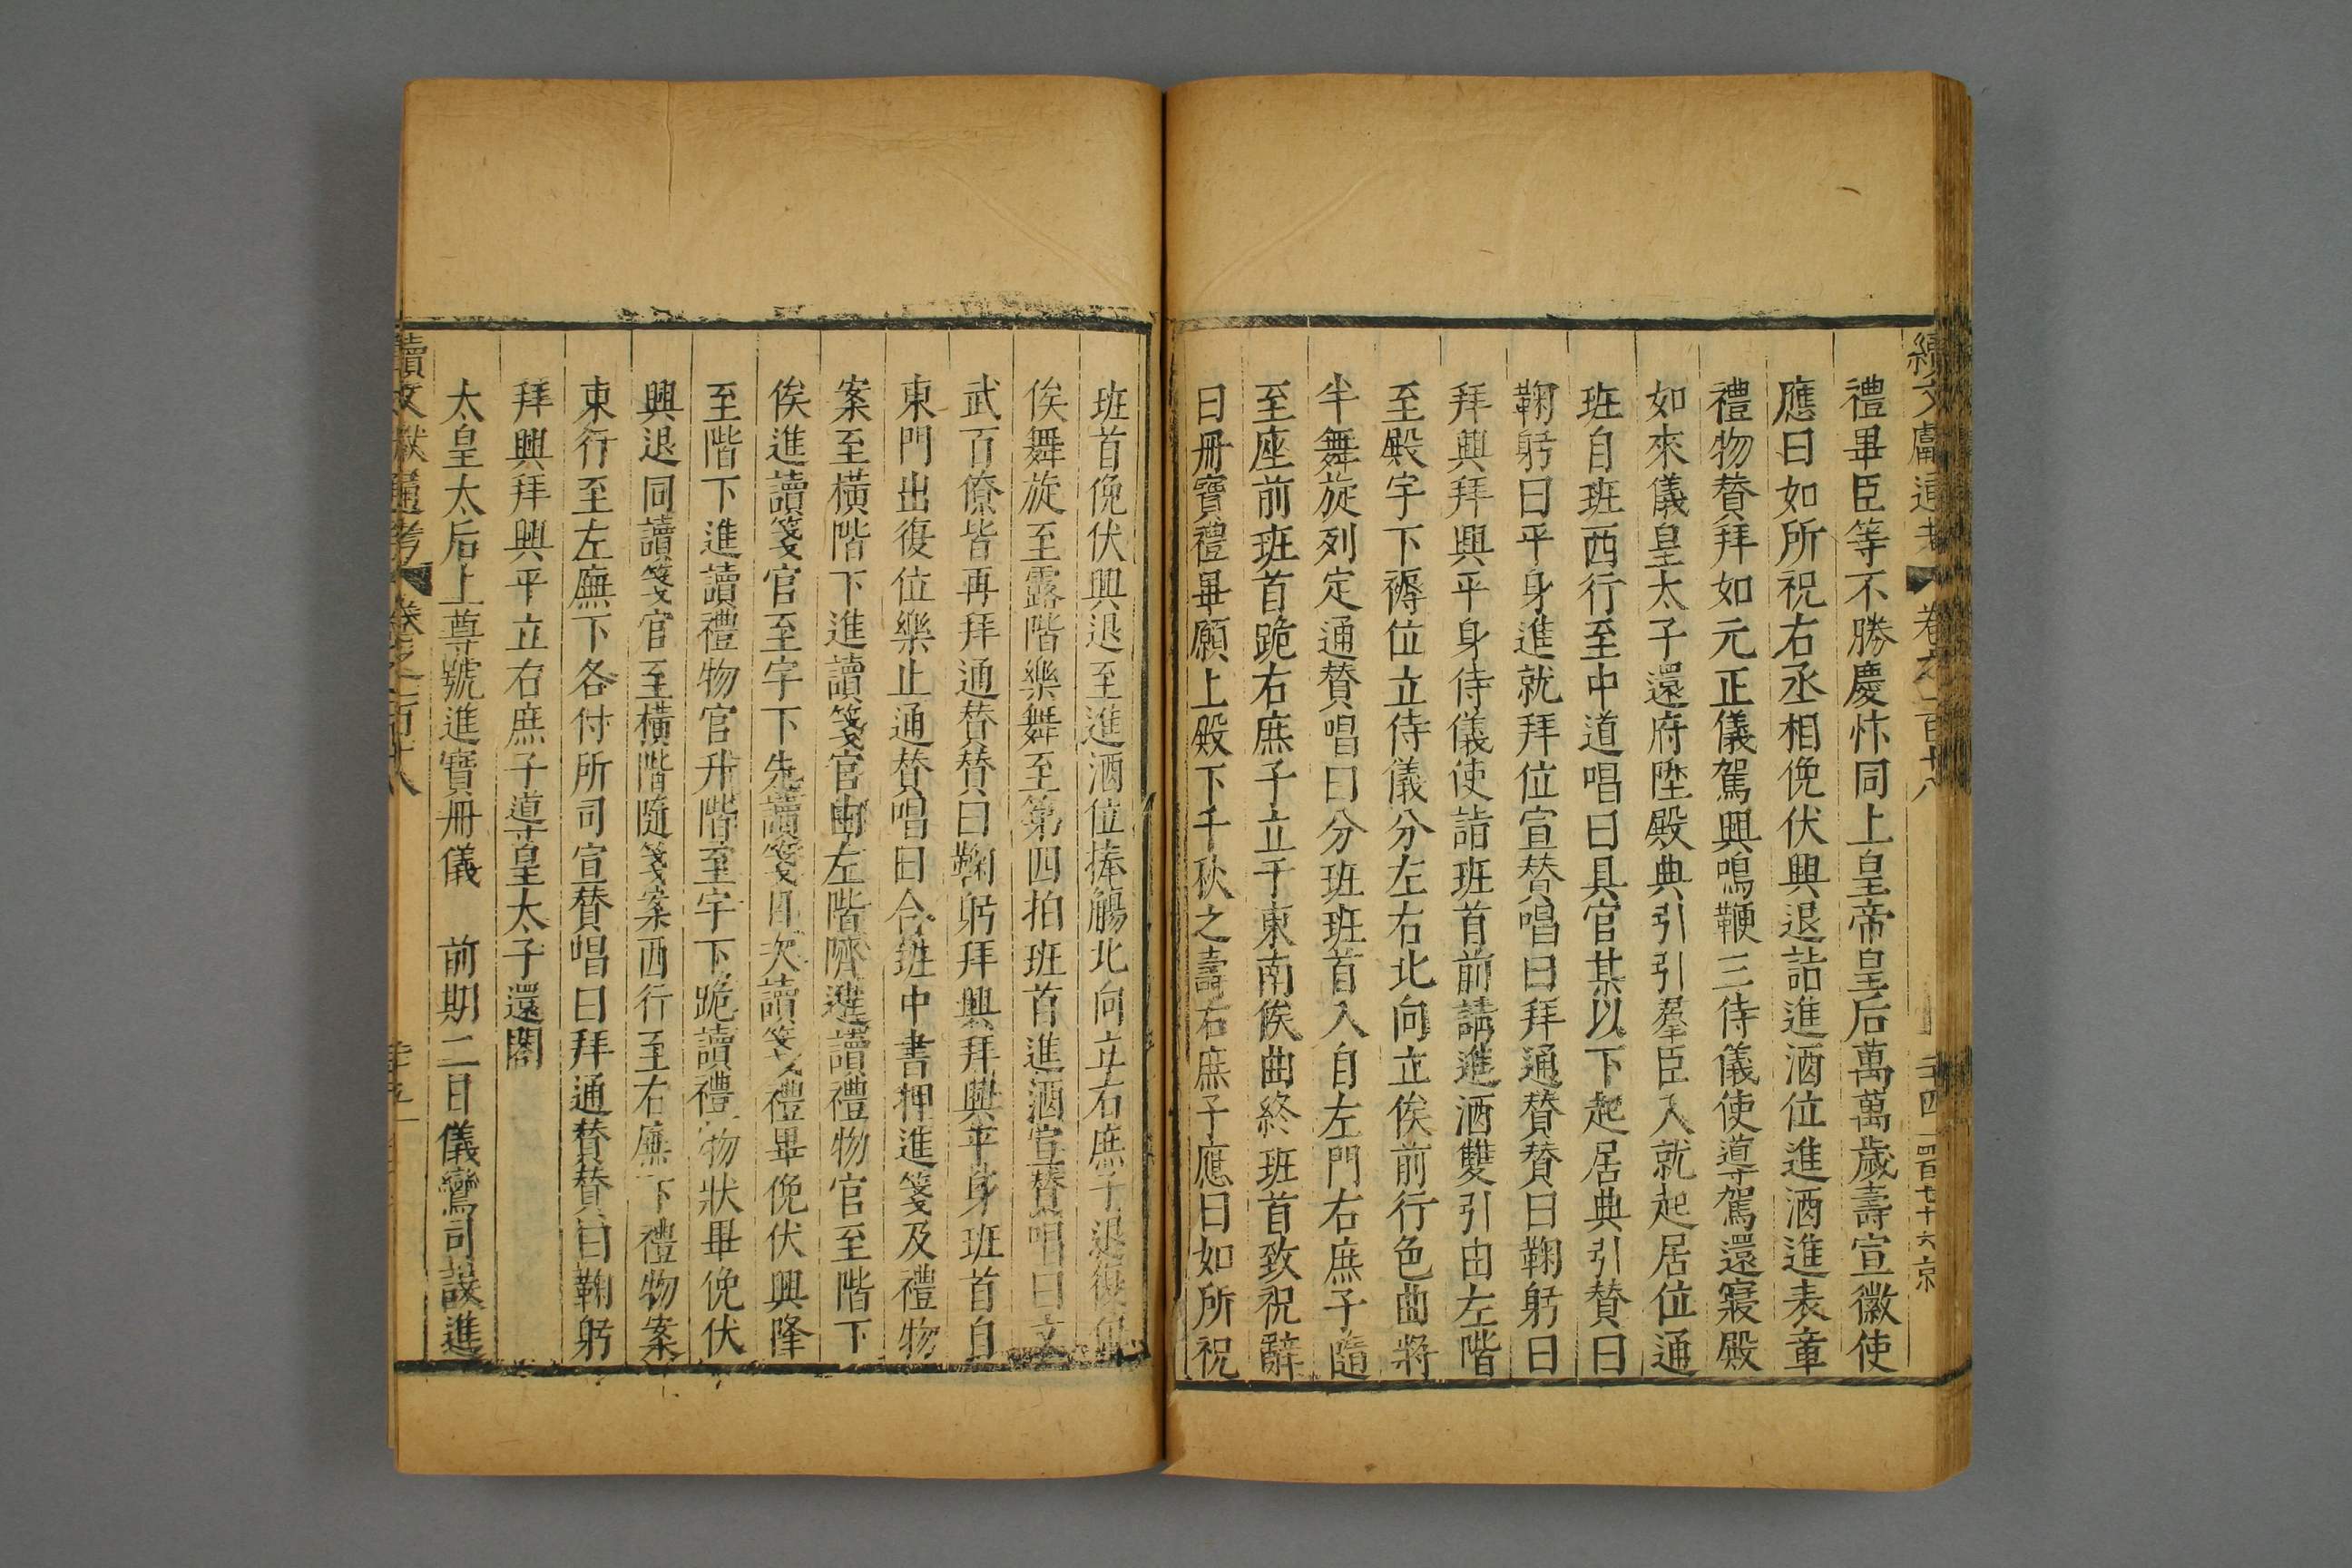 續文獻通考 卷之一百十八 二十四 四百七十六 京
禮畢臣等不勝慶忭同上皇帝皇后萬萬歲壽宣徽使
應曰如所祝右丞相俛伏興退詣進酒位進酒進表章
禮物贊拜如元正儀駕興鳴鞭三侍儀使導駕還寢殿
如來儀皇太子還府陞殿典引引羣臣入就起居位通
班自班西行至中道唱曰具官某以下起居典引贊曰
鞠躬曰平身進就拜位宣贊唱曰拜通贊贊曰鞠躬曰
拜興拜興平身侍儀使詣班首前請進酒雙引由左階
至殿宇下褥位立侍儀分左右北向立俟前行色曲將
半舞旋列定通贊唱曰分班班首入自左門右庶子隨
至座前班首跪右庶子立于東南俟曲終班首致祝辭
曰冊寶禮畢願上殿下千秋之壽右庶子應曰如所祝
班首俛伏興退至進酒位捧觴北向立右庶子退復位
俟舞旋至露階樂舞至第四拍班首進酒宣贊唱曰文
武百僚皆再拜通贊贊曰鞠躬拜興拜興平身班首自
東門出復位樂止通贊唱曰合班中書押進箋及禮物
案至橫階下進讀箋官由左階隮進讀禮物官至階下
俟進讀箋官至宇下先讀箋目次讀箋禮畢俛伏興降
至階下進讀禮物官升階至宇下跪讀禮物狀畢俛伏
興退同讀箋官至橫階隨箋案西行至右廡下禮物案
東行至左廡下各付所司宣贊唱曰拜通贊贊曰鞠躬
拜興拜興平立右庶子導皇太子還閣
太皇太后上尊號進寶冊儀　前期二日儀鸞司設進
續文獻通考 卷之一百十八